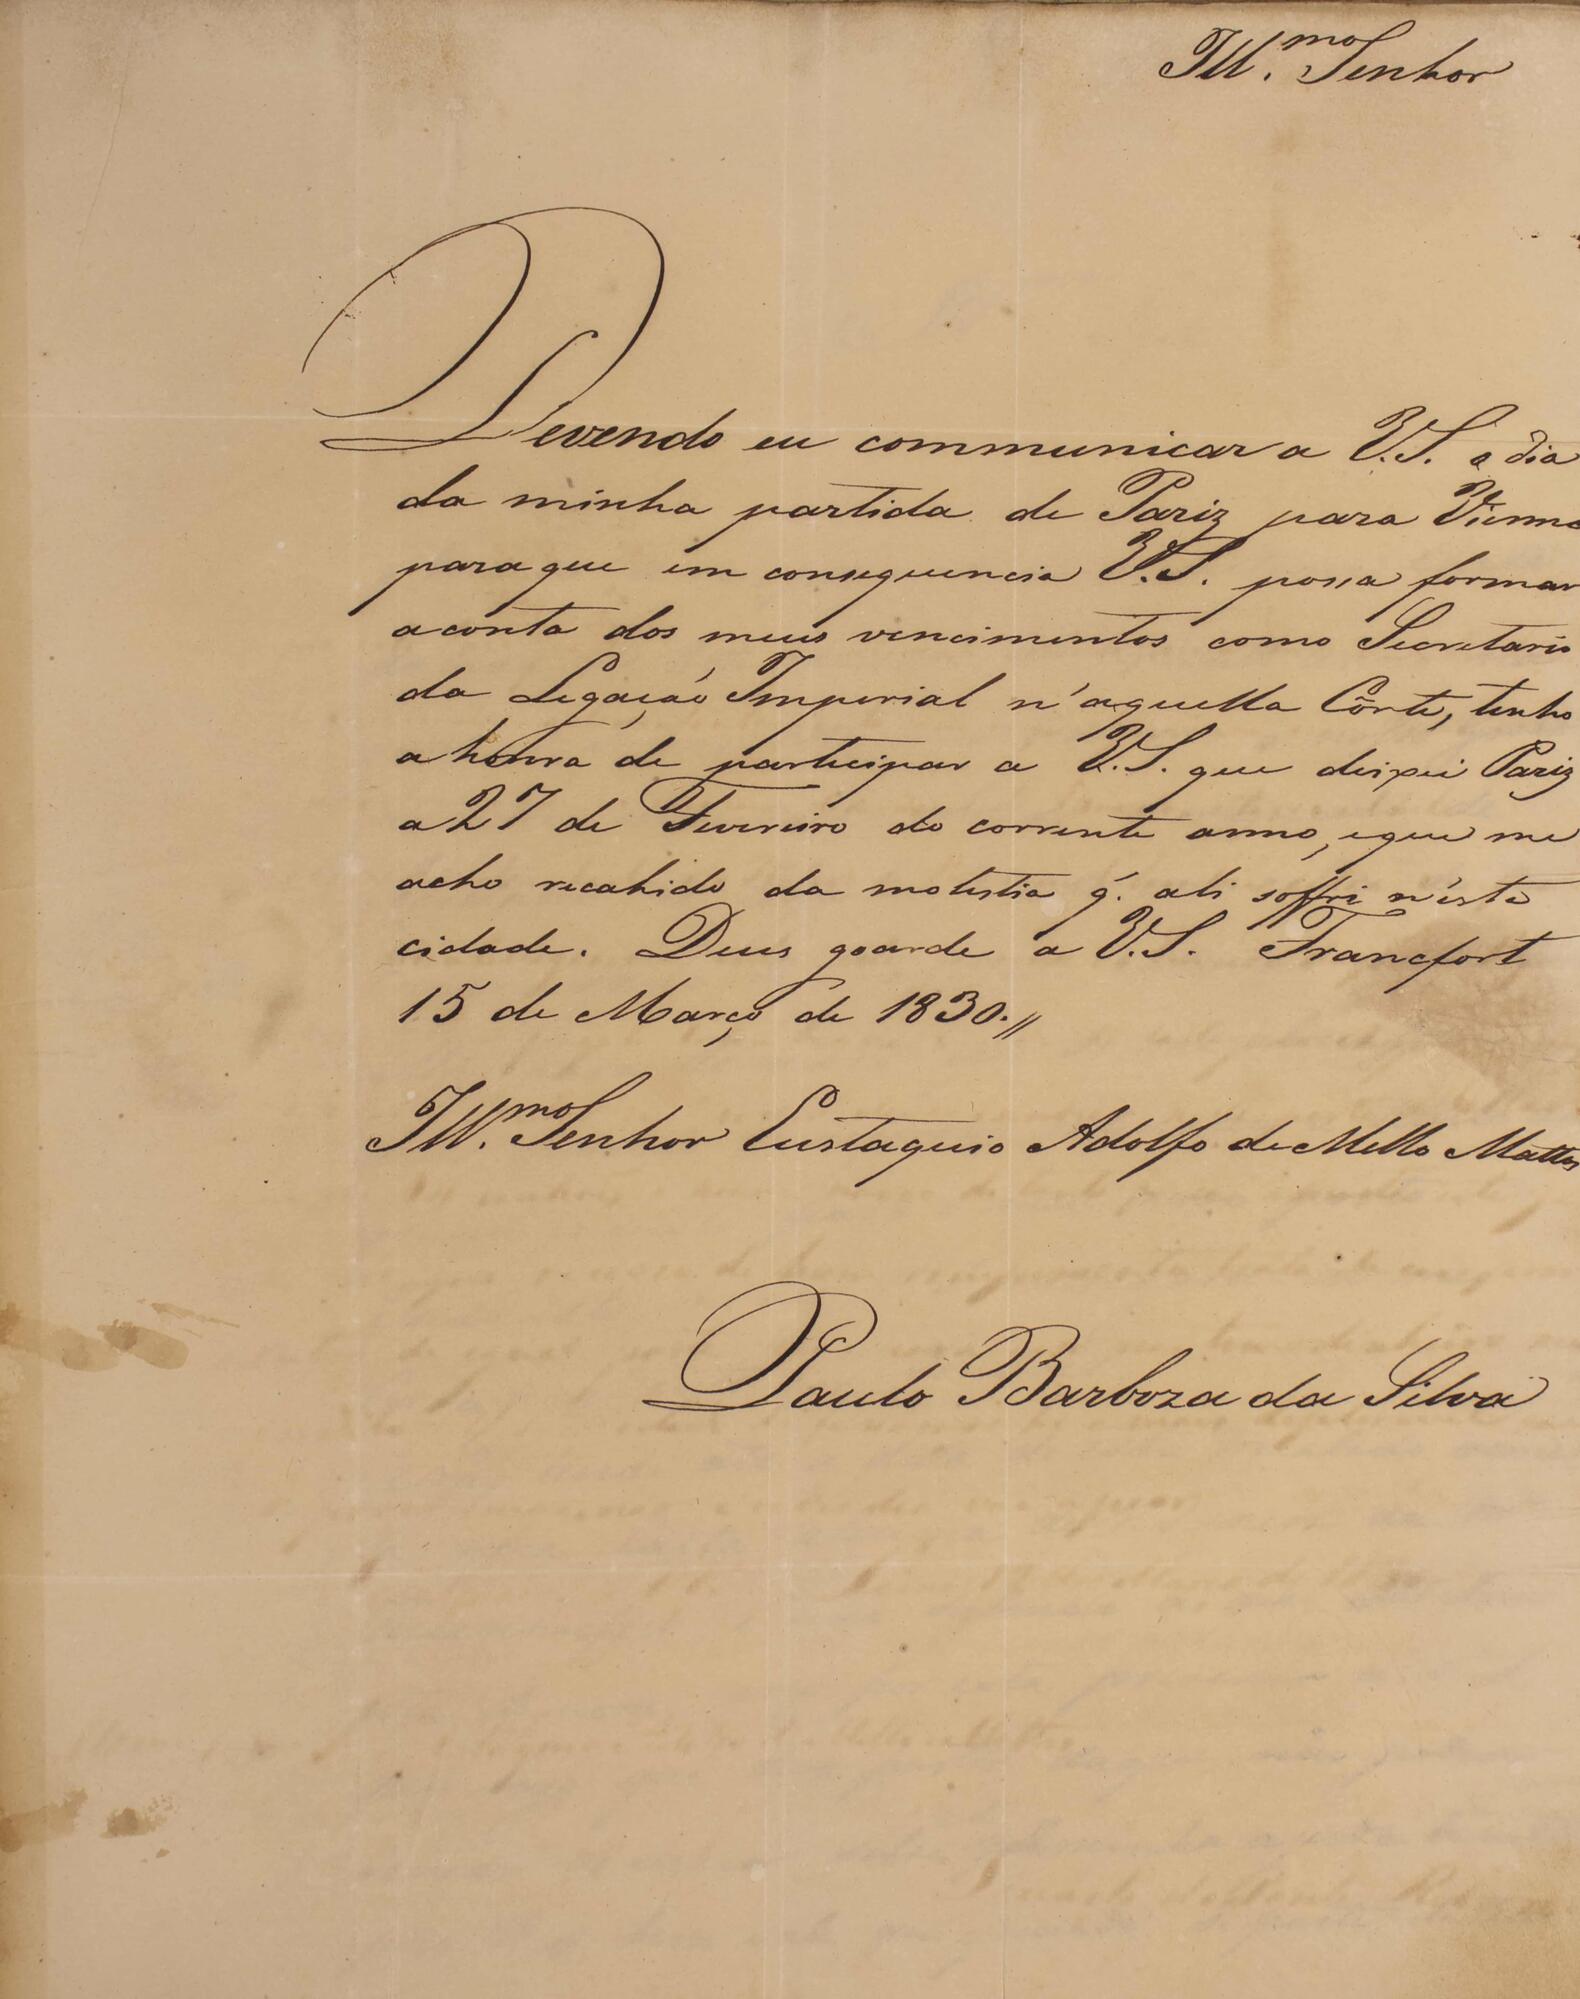 Ill.mo Senhor
Devendo eu communicar a V.S. o dia
da minha partida de Pariz para Vienna
para que em consequencia V.S. possa formar
a conta dos meus vencimentos como Secretario
da Legação Imperial n'aquella Côrte, tenho
a honra de participar a V.S. que deixei Pariz
a 27 de Fevereiro do corrente anno, e que me
acho recahido da molestia q. ali soffri n'esta
cidade. Deus goarde a V.S. Francfort
15 de Março de 1830.//
Ill.mo Senhor Eustaquio Adolfo de Mello Mattos
Paulo Barboza da Silva